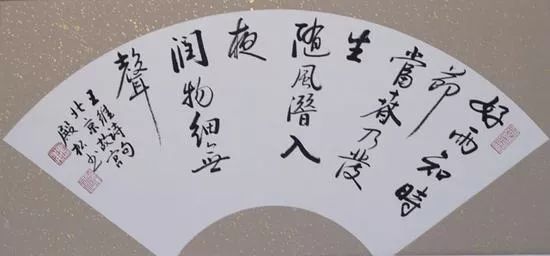 好雨知時
節
當春乃發
生
随風潛入
夜
潤物細無
聲
王維詩句
北京故宮
殿松书